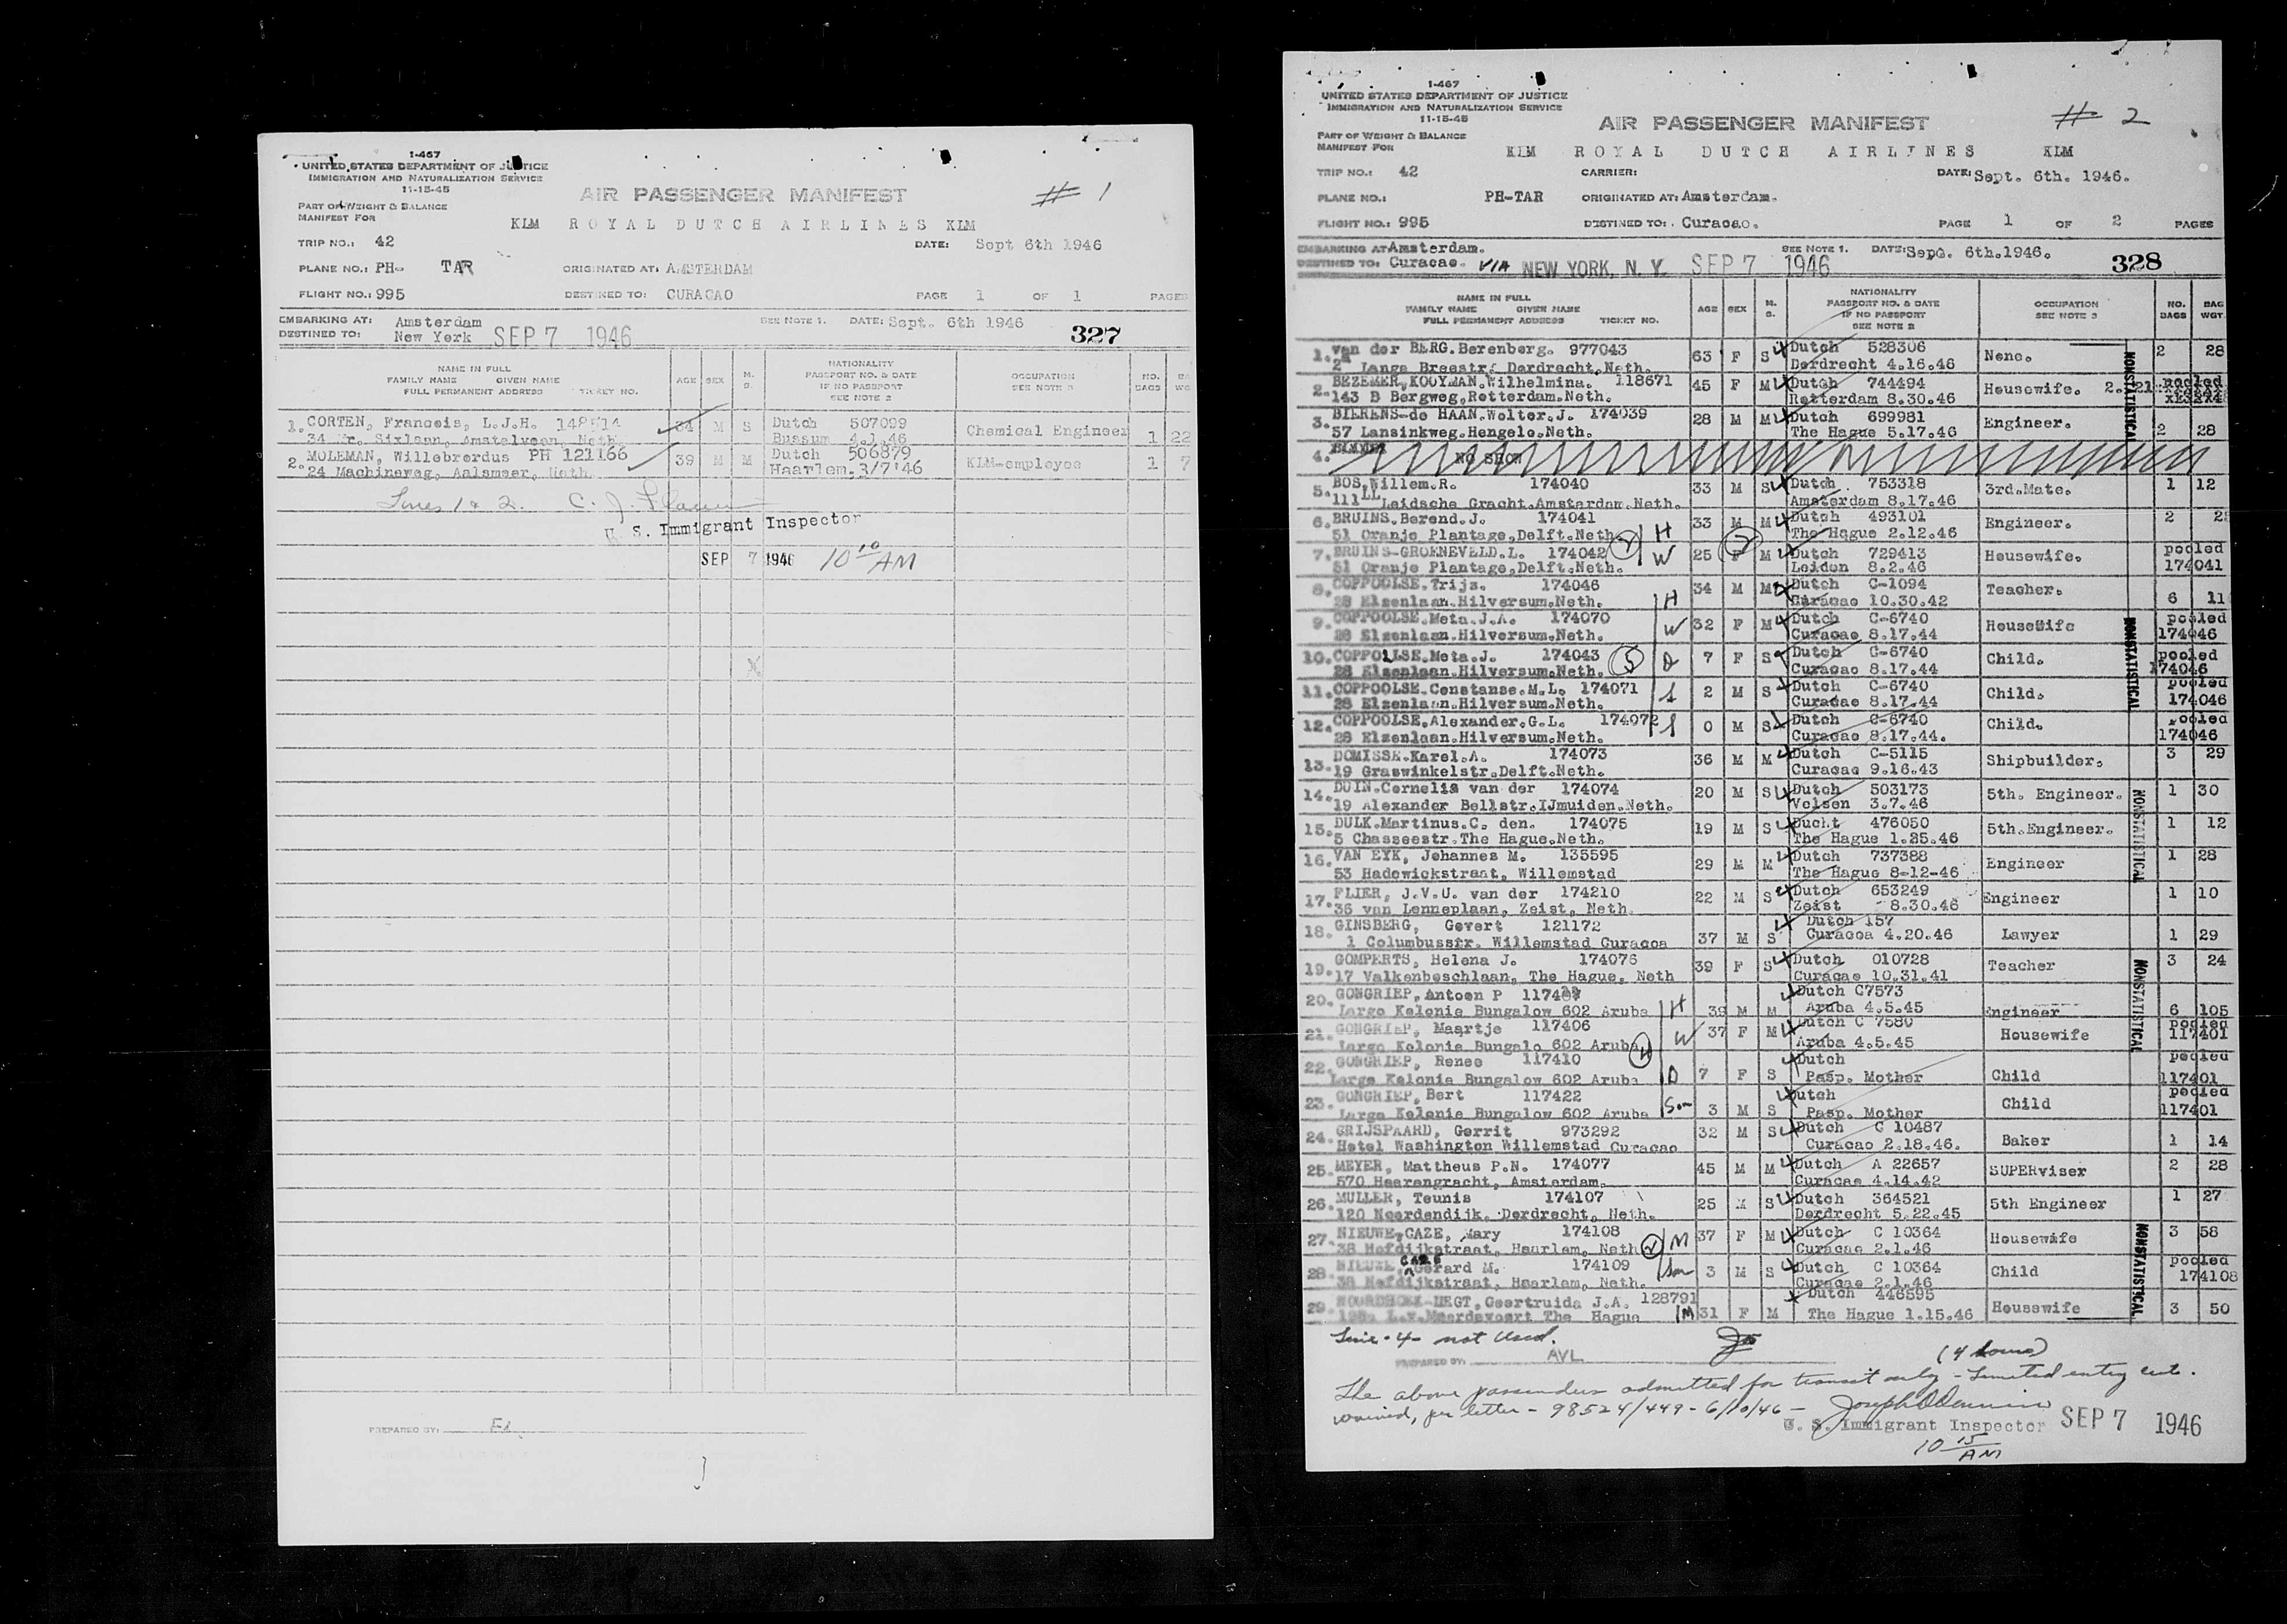 1-467
UNITED STATES DEPARTMENT OF JUSTICE
IMMIGRATION AND NATURALIZATION SERVICE
11-15-45
AIR PASSENGER MANIFEST
# 1
PART OF WEIGHT & BALANCE
MANIFEST FOR
KLM ROYAL DUTCH AIRLINES KLM
TRIP NO.: 42
DATE: Sept 6th 1946
PLANE NO.: PH- TAR
ORIGINATED AT: AMSTERDAM
FLIGHT NO.: 995
DESTINED TO: CURACAO
PAGE 1 OF 1 PAGES
EMBARKING AT: Amsterdam
SEE NOTE 1. DATE: Sept. 6th 1946
DESTINED TO: New York SEP 7 1946
327
NAME IN FULL
FAMILY NAME GIVEN NAME
FULL PERMANENT ADDRESS TICKET NO.
AGE SEX M. S.
NATIONALITY
PASSPORT NO. & DATE
IF NO PASSPORT
SEE NOTE 2
OCCUPATION
SEE NOTE 3
NO. BAGS
1. CORTEN, Francois, L.J.H. 148514 34 M S Dutch 507099 Chemical Engineer 1 22
34 Nr. Sixlaan, Amstelveen, Neth. Bussum 4.1.46
2. MOLEMAN, Willebrordus PH 121166 39 M M Dutch 506879 KLM-employee 1 7
24 Machineweg, Aalsmeer, Neth. Haarlem 3/7'46
Lines 1 & 2. C. J.
U. S. Immigrant Inspector
SEP 7 1946 10 10 AM
PREPARED BY:
1-467
UNITED STATES DEPARTMENT OF JUSTICE
IMMIGRATION AND NATURALIZATION SERVICE
11-15-45
AIR PASSENGER MANIFEST
# 2
PART OF WEIGHT & BALANCE
MANIFEST FOR
KLM ROYAL DUTCH AIRLINES KLM
TRIP NO.: 42
CARRIER:
DATE: Sept. 6th. 1946.
PLANE NO.: PH-TAR
ORIGINATED AT: Amsterdam.
FLIGHT NO.: 995
DESTINED TO: Curacao.
PAGE 1 OF 2 PAGES
EMBARKING AT Amsterdam.
SEE NOTE 1. DATE: Sept. 6th.1946.
DESTINED TO: Curacao. VIA NEW YORK, N. Y. SEP 7 1946
328
NAME IN FULL
FAMILY NAME GIVEN NAME
FULL PERMANENT ADDRESS TICKET NO.
AGE SEX M. S.
NATIONALITY
PASSPORT NO. & DATE
IF NO PASSPORT
SEE NOTE 2
OCCUPATION
SEE NOTE 3
NO. BAGS
BAG WGT.
1. van der BERG.Berenberg. 977043 63 F S Dutch 528306 None. 2 28
2 Lange Breestr. Dordrecht.Neth. Dordrecht 4.16.46
2. BEZEMER,KOUYMAN.Wilhelmina. 118671 45 F M Dutch 744494 Housewife. 2. 21 pooled
143 B Bergweg,Rotterdam.Neth. Rotterdam 8.30.46
3. BIERENS-de HAAN.Wolter.J. 174039 28 M M Dutch 699981 Engineer. 2 28
57 Lansinkweg.Hengelo.Neth. The Hague 5.17.46
4. NO SHOW
5. BOS.Willem.R. 174040 33 M S Dutch 753318 3rd.Mate. 1 12
111 LL Leidsche Gracht.Amsterdam.Neth. Amsterdam 8.17.46
6. BRUINS.Berend.J. 174041 H 33 M M Dutch 493101 Engineer. 2
51 Oranje Plantage,Delft.Neth. The Hague 2.12.46
7. BRUINS-GROENEVELD.L. 174042 2 W 25 F M Dutch 729413 Housewife. pooled
51 Oranje Plantage,Delft.Neth. Leiden 8.2.46 174041
8. COPPOOLSE.Trijs. 174046 H 34 M M Dutch C-1094 Teacher. 6 11
28 Elzenlaan.Hilversum.Neth. Curacao 10.30.42
9. COPPOOLSE.Meta.J.A. 174070 W 32 F M Dutch C-6740 Housewife pooled
28 Elzenlaan.Hilversum.Neth. Curacao 8.17.44 174046
10. COPPOOLSE.Meta.J. 174043 5 D 7 F S Dutch C-6740 Child. pooled
28 Elzenlaan.Hilversum.Neth. Curacao 8.17.44 174046
11. COPPOOLSE.Constanse.M.L. 174071 S 2 M S Dutch C-6740 Child. pooled
28 Elzenlaan.Hilversum.Neth. Curacao 8.17.44 174046
12. COPPOOLSE.Alexander.G.L. 174072 S 0 M S Dutch C-6740 Child. pooled
28 Elzenlaan.Hilversum.Neth. Curacao 8.17.44. 174046
13. DOMISSE.Karel.A. 174073 36 M M Dutch C-5115 Shipbuilder. 3 29
19 Graswinkelstr.Delft.Neth. Curacao 9.16.43
14. DUIN.Cornelis van der 174074 20 M S Dutch 503173 5th. Engineer. 1 30
19 Alexander Bellstr.IJmuiden.Neth. Velsen 3.7.46
15. DULK.Martinus.C. den. 174075 19 M S Ducht 476050 5th.Engineer. 1 12
5 Chasseestr.The Hague.Neth. The Hague 1.25.46
16. VAN EYK, Johannes M. 135595 29 M M Dutch 737388 Engineer 1 28
53 Hadewickstraat, Willemstad The Hague 8-12-46
17. FLIER, J.V.U. van der 174210 22 M S Dutch 653249 Engineer 1 10
36 van Lenneplaan, Zeist, Neth. Zeist 8.30.46
18. GINSBERG, Gevert 121172 37 M S Dutch 157 Lawyer 1 29
1 Columbusstr. Willemstad Curacoa Curacoa 4.20.46
19. GOMPERTS, Helena J. 174076 39 F S Dutch 010728 Teacher 3 24
17 Valkenboschlaan, The Hague, Neth Curacao 10.31.41
20. GONGRIEP, Antoon P H 39 M M Dutch C7573 Engineer 6 105
Largo Kolonie Bungalow 602 Aruba Aruba 4.5.45
21. GONGRIEP, Maartje 117406 W 37 F M Dutch C 7580 Housewife pooled
Largo Kolonie Bungalo 602 Aruba 4 Aruba 4.5.45 117401
22. GONGRIEP, Renee 117410 D 7 F S Dutch Child pooled
Largo Kolonie Bungalow 602 Aruba Pasp. Mother 117401
23. GONGRIEP, Bert 117422 Son 3 M S Dutch Child pooled
Largo Kolonie Bungalow 602 Aruba Pasp. Mother 117401
24. GRIJSPAARD, Gerrit 973292 32 M S Dutch C 10487 Baker 1 14
Hotel Washington Willemstad Curacao Curacao 2.18.46.
25. MEYER, Mattheus P.N. 174077 45 M M Dutch A 22657 SUPERviser 2 28
570 Heerengracht, Amsterdam. Curacao 4.14.42
26. MULLER, Teunis 174107 25 M S Dutch 364521 5th Engineer 1 27
120 Noordendijk. Dordrecht, Neth. Dordrecht 5.22.45
27. NIEUWE,CAZE, Mary 174108 M 37 F M Dutch C 10364 Housewife 3 58
38 Hofdijkstraat, Haarlem, Neth 2 Curacao 2.1.46
28. NIEUWE CAZE Gerard M. 174109 Son 3 M S Dutch C 10364 Child pooled
38 Hofdijkstraat, Haarlem, Neth. Curacao 2.1.46 174108
29. NOORDHOEK-HEGT, Geertruida J.A. 128791 M 31 F M Dutch 446595 Housewife 3 50
L.v.Meerdevoort The Hague The Hague 1.15.46
NONSTATISTICAL
NONSTATISTICAL
NONSTATISTICAL
NONSTATISTICAL
NONSTATISTICAL
Line 4 not used.
PREPARED BY: AVL
(4 hours)
The above passengers admitted for transit only - Limited entry cert.
waived, per letter - 98524/449 - 6/10/46 -
U. S. Immigrant Inspector SEP 7 1946
10 15 AM